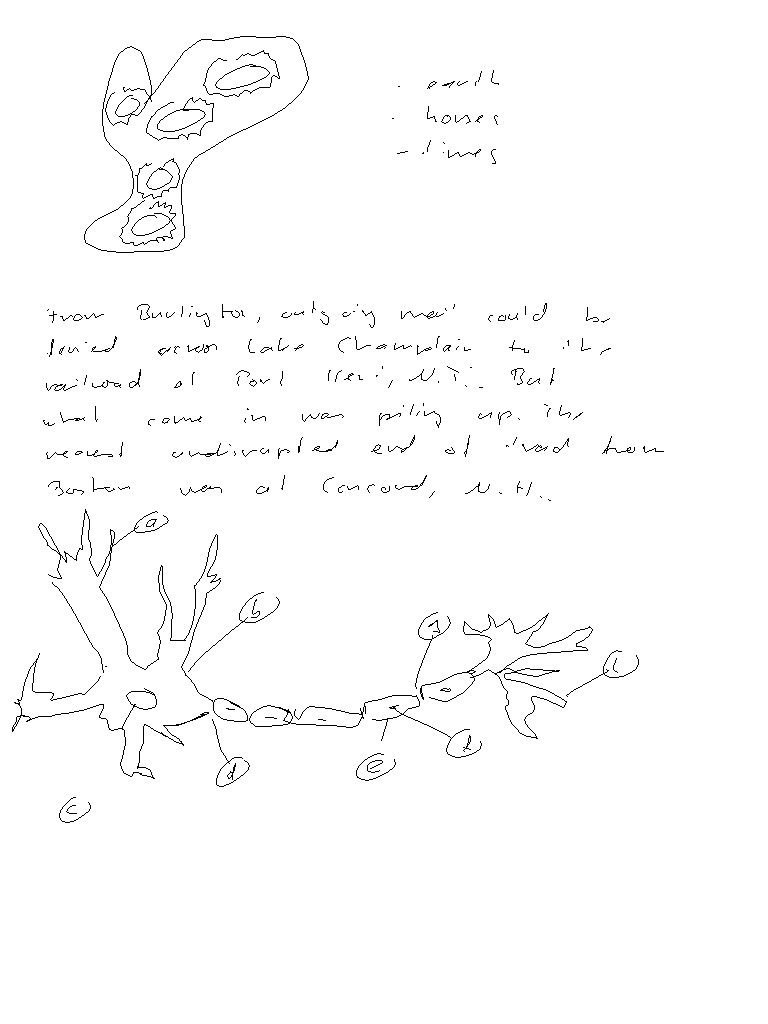 - earth
- houses
- times
From Burlington, outgoing mail could be
ferried across Lake Champlain to the
railroad at Port Henri, N.Y.. But
what came in was piling up. The
nearest undisrupted end of road from
Boston was at Concord, N.H..
a
b
g
d
f
e
c